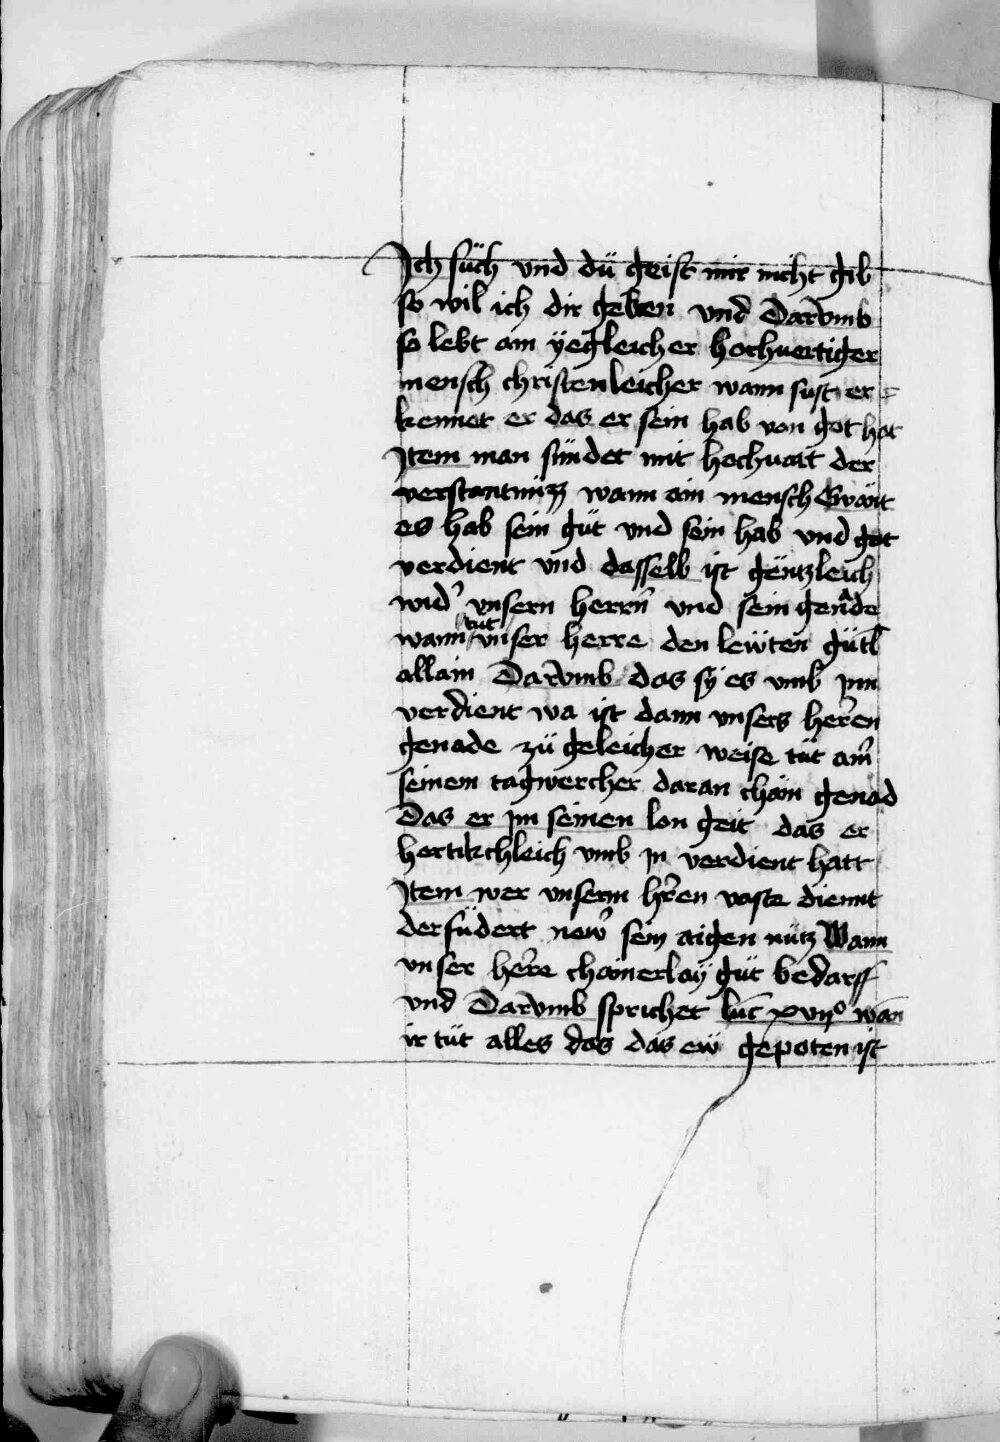 Ich süch vnd dü geist mir nicht gib
so wil ich dir geben vnd Darvmb
so lebt ain yegleicher hochuertiger
mensch christenleicher wann sust er=
kennet er das er sein hab von got hat
Item man sündet mit hochuart der
verstantnüzz wann ain mensch Gwänt
es hab sein güt vnd sein hab vnd got
verdient vnd dasselb ist gëntzleich
wid' vnsern herrn̄ vnd sein genâde
wann tüt vnser herre den lewten gütl̄
allain Darvmb das sy es vmb jnn
verdient wa ist dann vnsers herren
genade zü geleicher weise tüt aīn
seinem tagwercher daran chain genad
Das er jm seinen lon geit das er
hertikchleich vmb jn verdient hatt
Item wer vnserm hr̄en vaste dient
der füdert new' sein aigen nütz Wann
vnser her̄e chainerlay güt bedarff
vnd Darvmb sprichet luc̄ xvij° wan̄
ir tüt alles das das ew gepoten ist